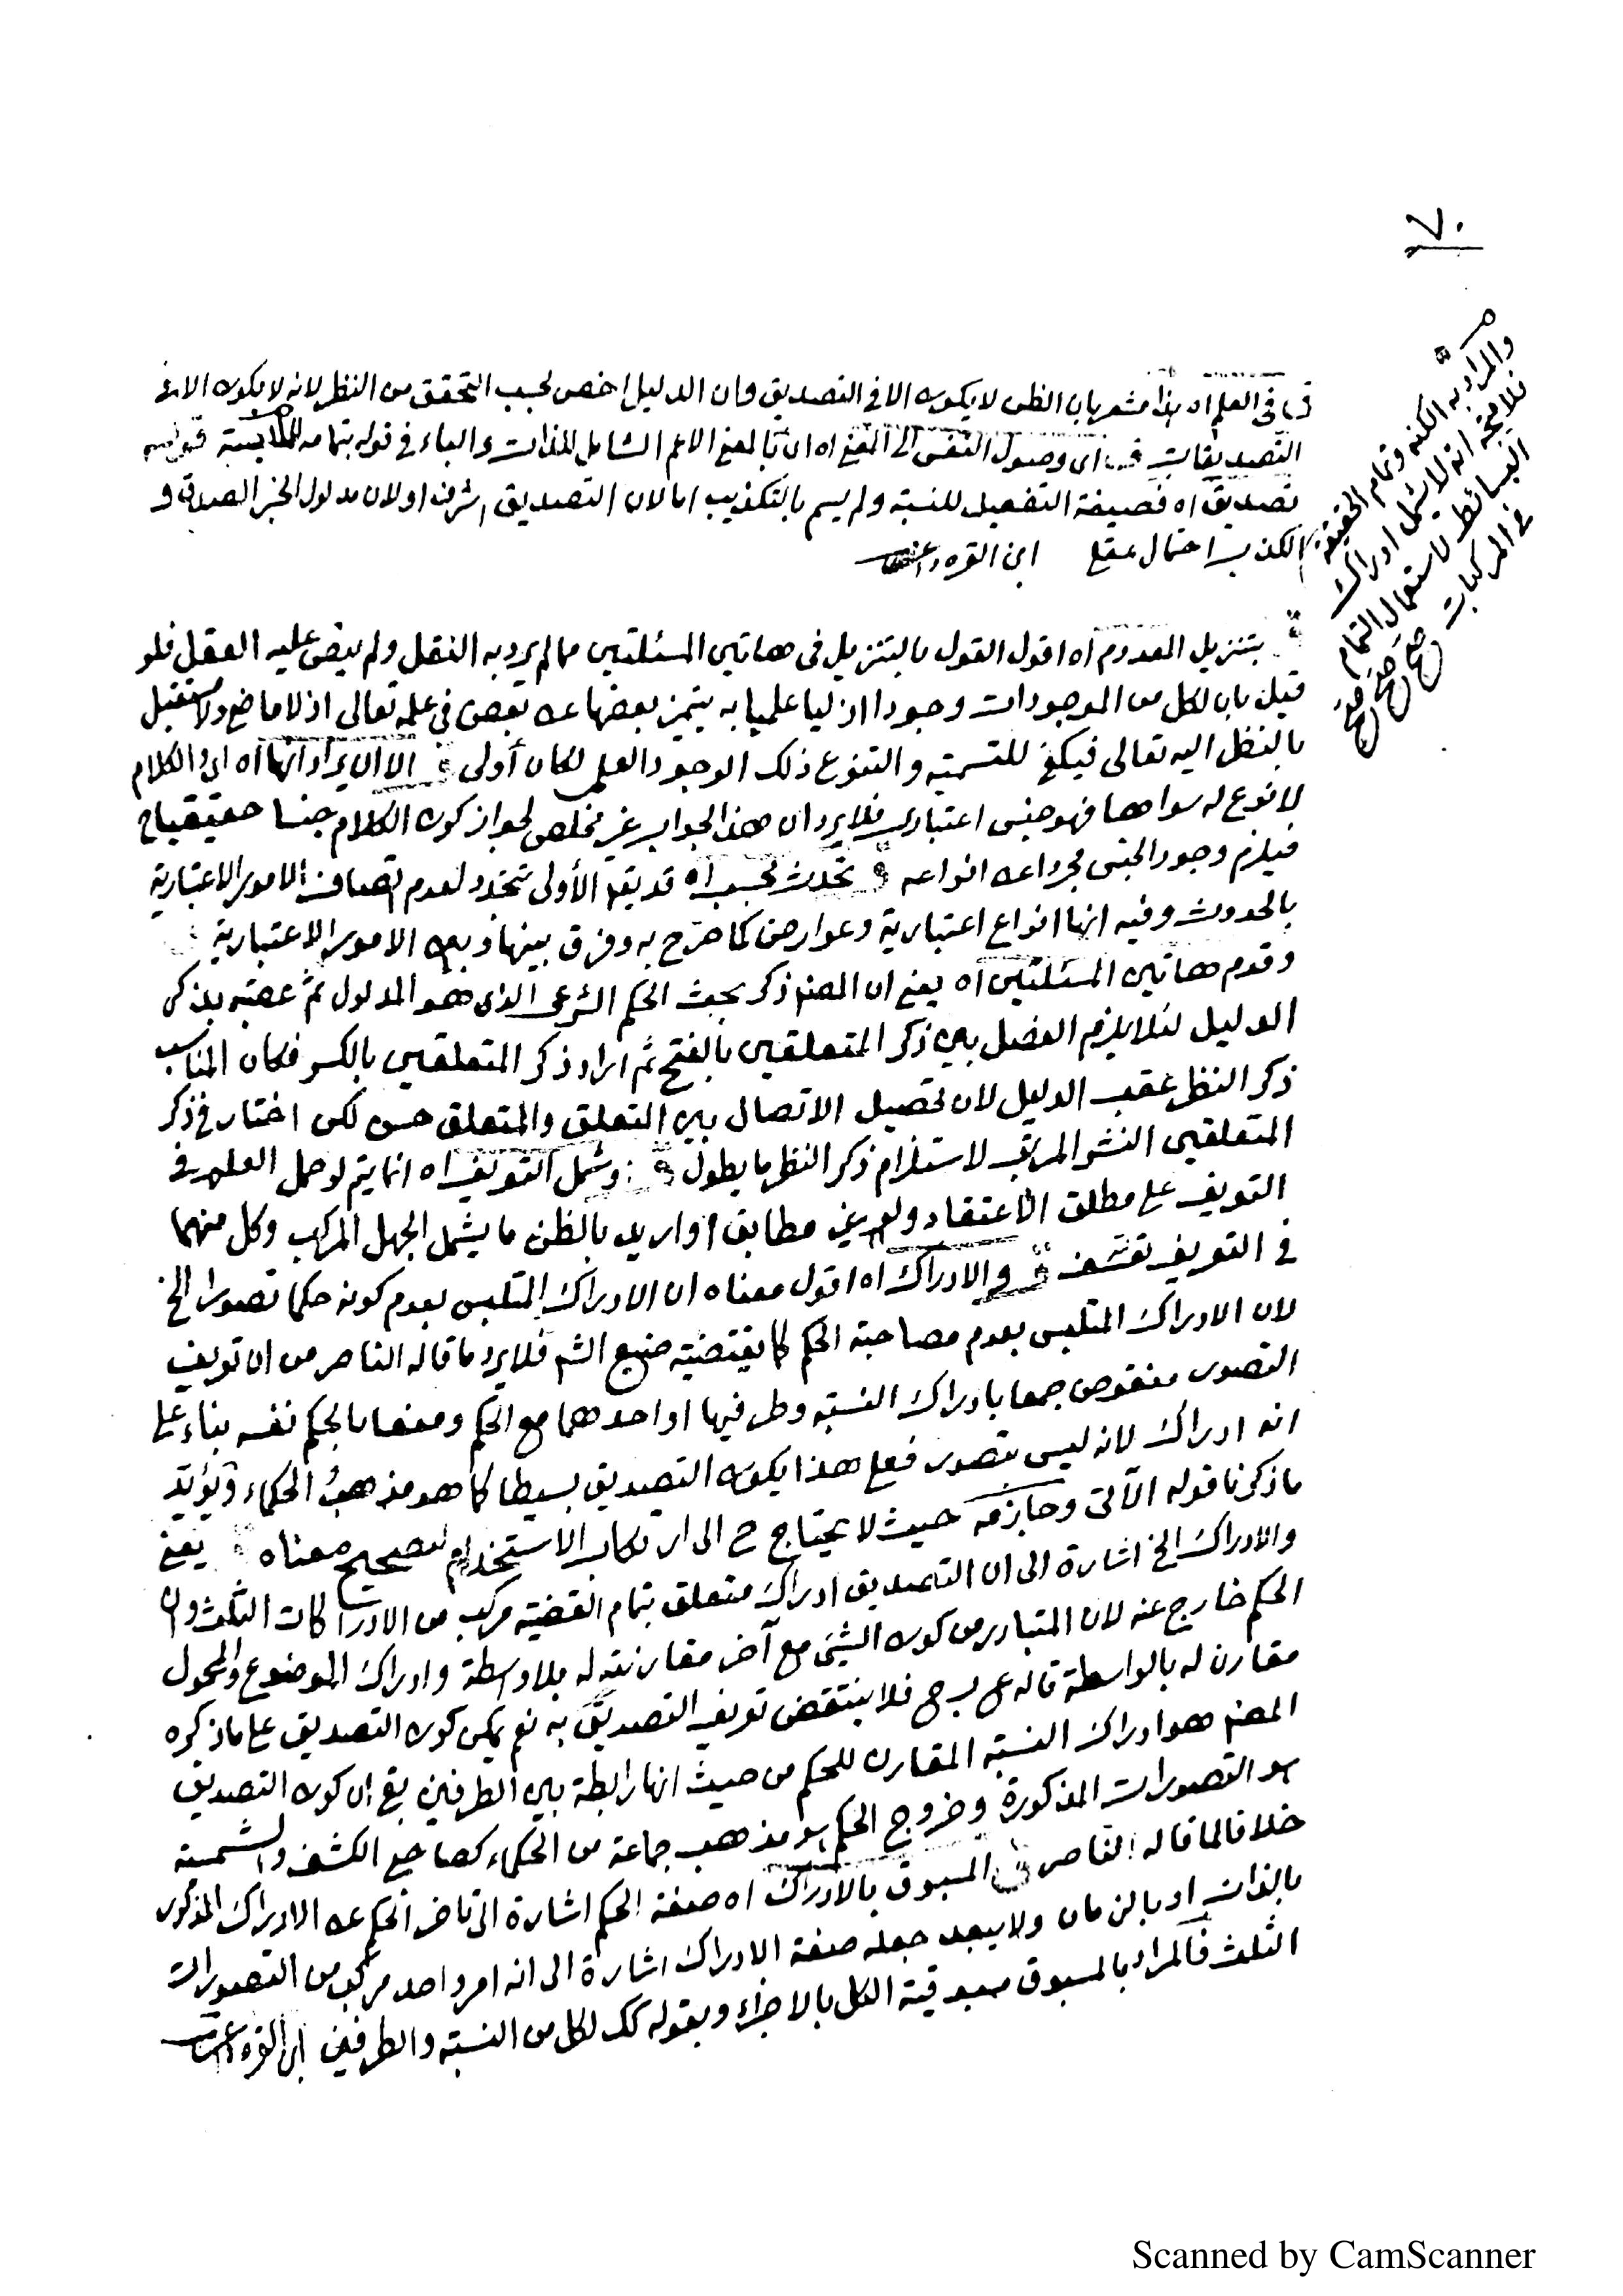 ٧٠
والمراد به الكنه وتمام الحقيقة
فلا يتجه انه لا يشمل ادراك
البسائط لاستعمال التمام
في المركبات صح صح صح
في العلم اه هذا مشعر بان الظن لا يكون الا في التصديق وان الدليل اخص بحسب التحقق من النظر لانه لا يكون الا في
التصديقات اى وصول النفس الى المعنى اه اى بالمعنى الاعم الشامل للذات والباء في قوله بتمامه للملابسة قوله
تصديق اه فصيغة التفعيل للنسبة ولم يسم بالتكذيب اما لان التصديق اشرف او لان مدلول الخبر الصدق و
الكذب احتمال عقلي ابن القره داغي
بتنزيل المعدوم اه اقول القول بالتنزيل في هاتين المسئلتين مما لم يرد به النقل ولم يقض عليه العقل فلو
قيل بان لكل من الموجودات وجودا ازليا علميا به يتميز بعضها عن بعض في علمه تعالى اذ لا ماضي ولا مستقبل
بالنظر اليه تعالى فيكفي للتسمية والتنوع ذلك الوجود العلمي لكان أولى الا ان يراد انها اه اى والكلام
لا نوع له سواها فهو جنس اعتباري فلا يرد ان هذا الجواب غير مخلص لجواز كون الكلام جنسا حقيقيا
فيلزم وجود الجنس مجردا عن انواعه تحدث بحسب اه قد يقال الأولى تتجدد لعدم اتصاف الامور الاعتبارية
بالحدوث وفيه انها انواع اعتبارية وعوارض كما صرح به وفرق بينها وبين الامور الاعتبارية
وقدم هاتين المسئلتين اه يعني ان المصنف ذكر بحث الحكم الشرعي الذى هو المدلول ثم عقبه بذكر
الدليل لئلا يلزم الفصل بين ذكر المتعلقين بالفتح ثم اراد ذكر المتعلقين بالكسر فكان المناسب
ذكر النظر عقب الدليل لان تحصيل الاتصال بين التعلق والمتعلق حسن لكن اختار في ذكر
المتعلقين النشر المرتب لاستلزام ذكر النظر ما يطول وشمل التعريف اه انما يتم لو حمل العلم في
التعريف على مطلق الاعتقاد ولو غير مطابق او اريد بالظن ما يشمل الجهل المركب وكل منهما
في التعريف تعسف والادراك اه اقول معناه ان الادراك المتلبس بعدم كونه حكما تصور الخ
لان الادراك المتلبس بعدم مصاحبة الحكم كما يقتضيه صنيع الشم فلا يرد ما قاله الناصر من ان تعريف
التصور منقوض جمعا بادراك النسبة وطرفيها او احدهما مع الحكم ومنعا بالحكم نفسه بناء على
انه ادراك لانه ليس بتصور فعلى هذا يكون التصديق بسيطا كما هو مذهب الحكماء ويؤيد
ما ذكرنا قوله الآتى وجازمه حيث لا يحتاج ح الى ارتكاب الاستخدام لتصحيح معناه يعني
والادراك الخ اشارة الى ان التصديق ادراك متعلق بتمام القضية مركب من الادراكات الثلث وان
الحكم خارج عنه لان المتبادر من كون الشئ مع آخر مقارنته له بلا واسطة وادراك الموضوع والمحمول
مقارن له بالواسطة قاله ع ب ح فلا ينتقض تعريف التصديق به نعم يمكن كون التصديق على ما ذكره
المصنف هو ادراك النسبة المقارن للحكم من حيث انها رابطة بين الطرفين بقي ان كون التصديق
هو التصورات المذكورة وخروج الحكم هو مذهب جماعة من الحكماء كصاحبي الكشف والشمسية
خلافا لما قاله الناصر المسبوق بالادراك اه صفة الحكم اشارة الى تاخر الحكم عن الادراك المذكور
بالذات او بالزمان ولا يبعد جعله صفة الادراك اشارة الى انه امر واحد مركب من التصورات
الثلث فالمراد بالمسبوق مسبوقية الكل بالاجزاء وبقوله كك لكل من النسبة والطرفين ابن القره داغي
Scanned by CamScanner